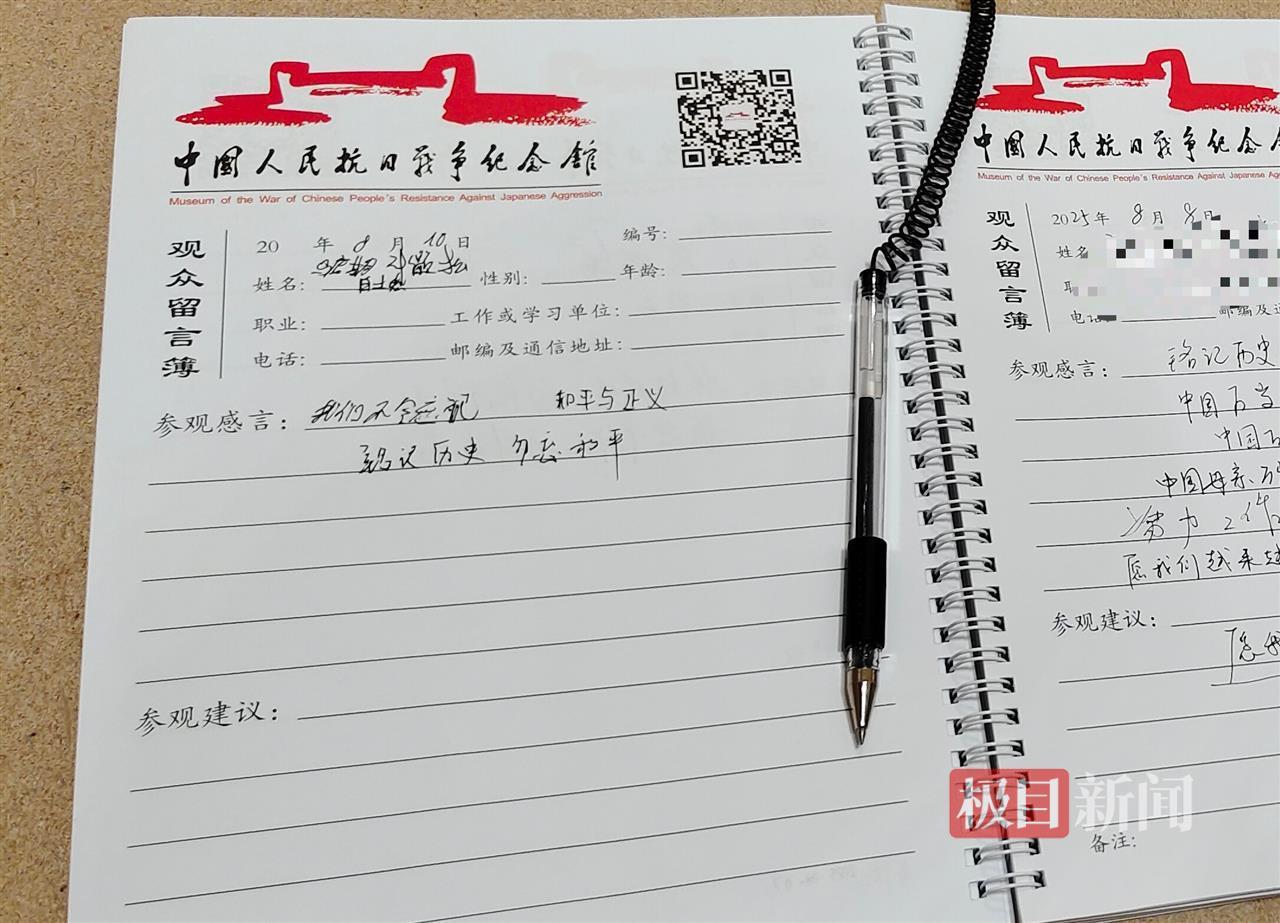 中國人民抗日戰争纪念館
Museum of the War of Chinese People's Resistance Against Japanese Aggression
观众留言簿
20 年 8 月 10 日
编号:
姓名: 性别: 年龄:
职业: 工作或学习单位:
电话: 邮编及通信地址:
参观感言: 我们不会忘记 和平与正义
铭记历史 勿忘和平
参观建议:
中國人民抗日戰争纪念
Museum of the War of Chinese People's Resistance Against Japanese Ag
观众留言簿
2025年 8月 8日
姓名
电话 邮编及通
参观感言: 铭记历史
中国万岁
中国万
中国母亲万
努力工作
愿我们越来越
参观建议:
愿我
备注:
极目新闻